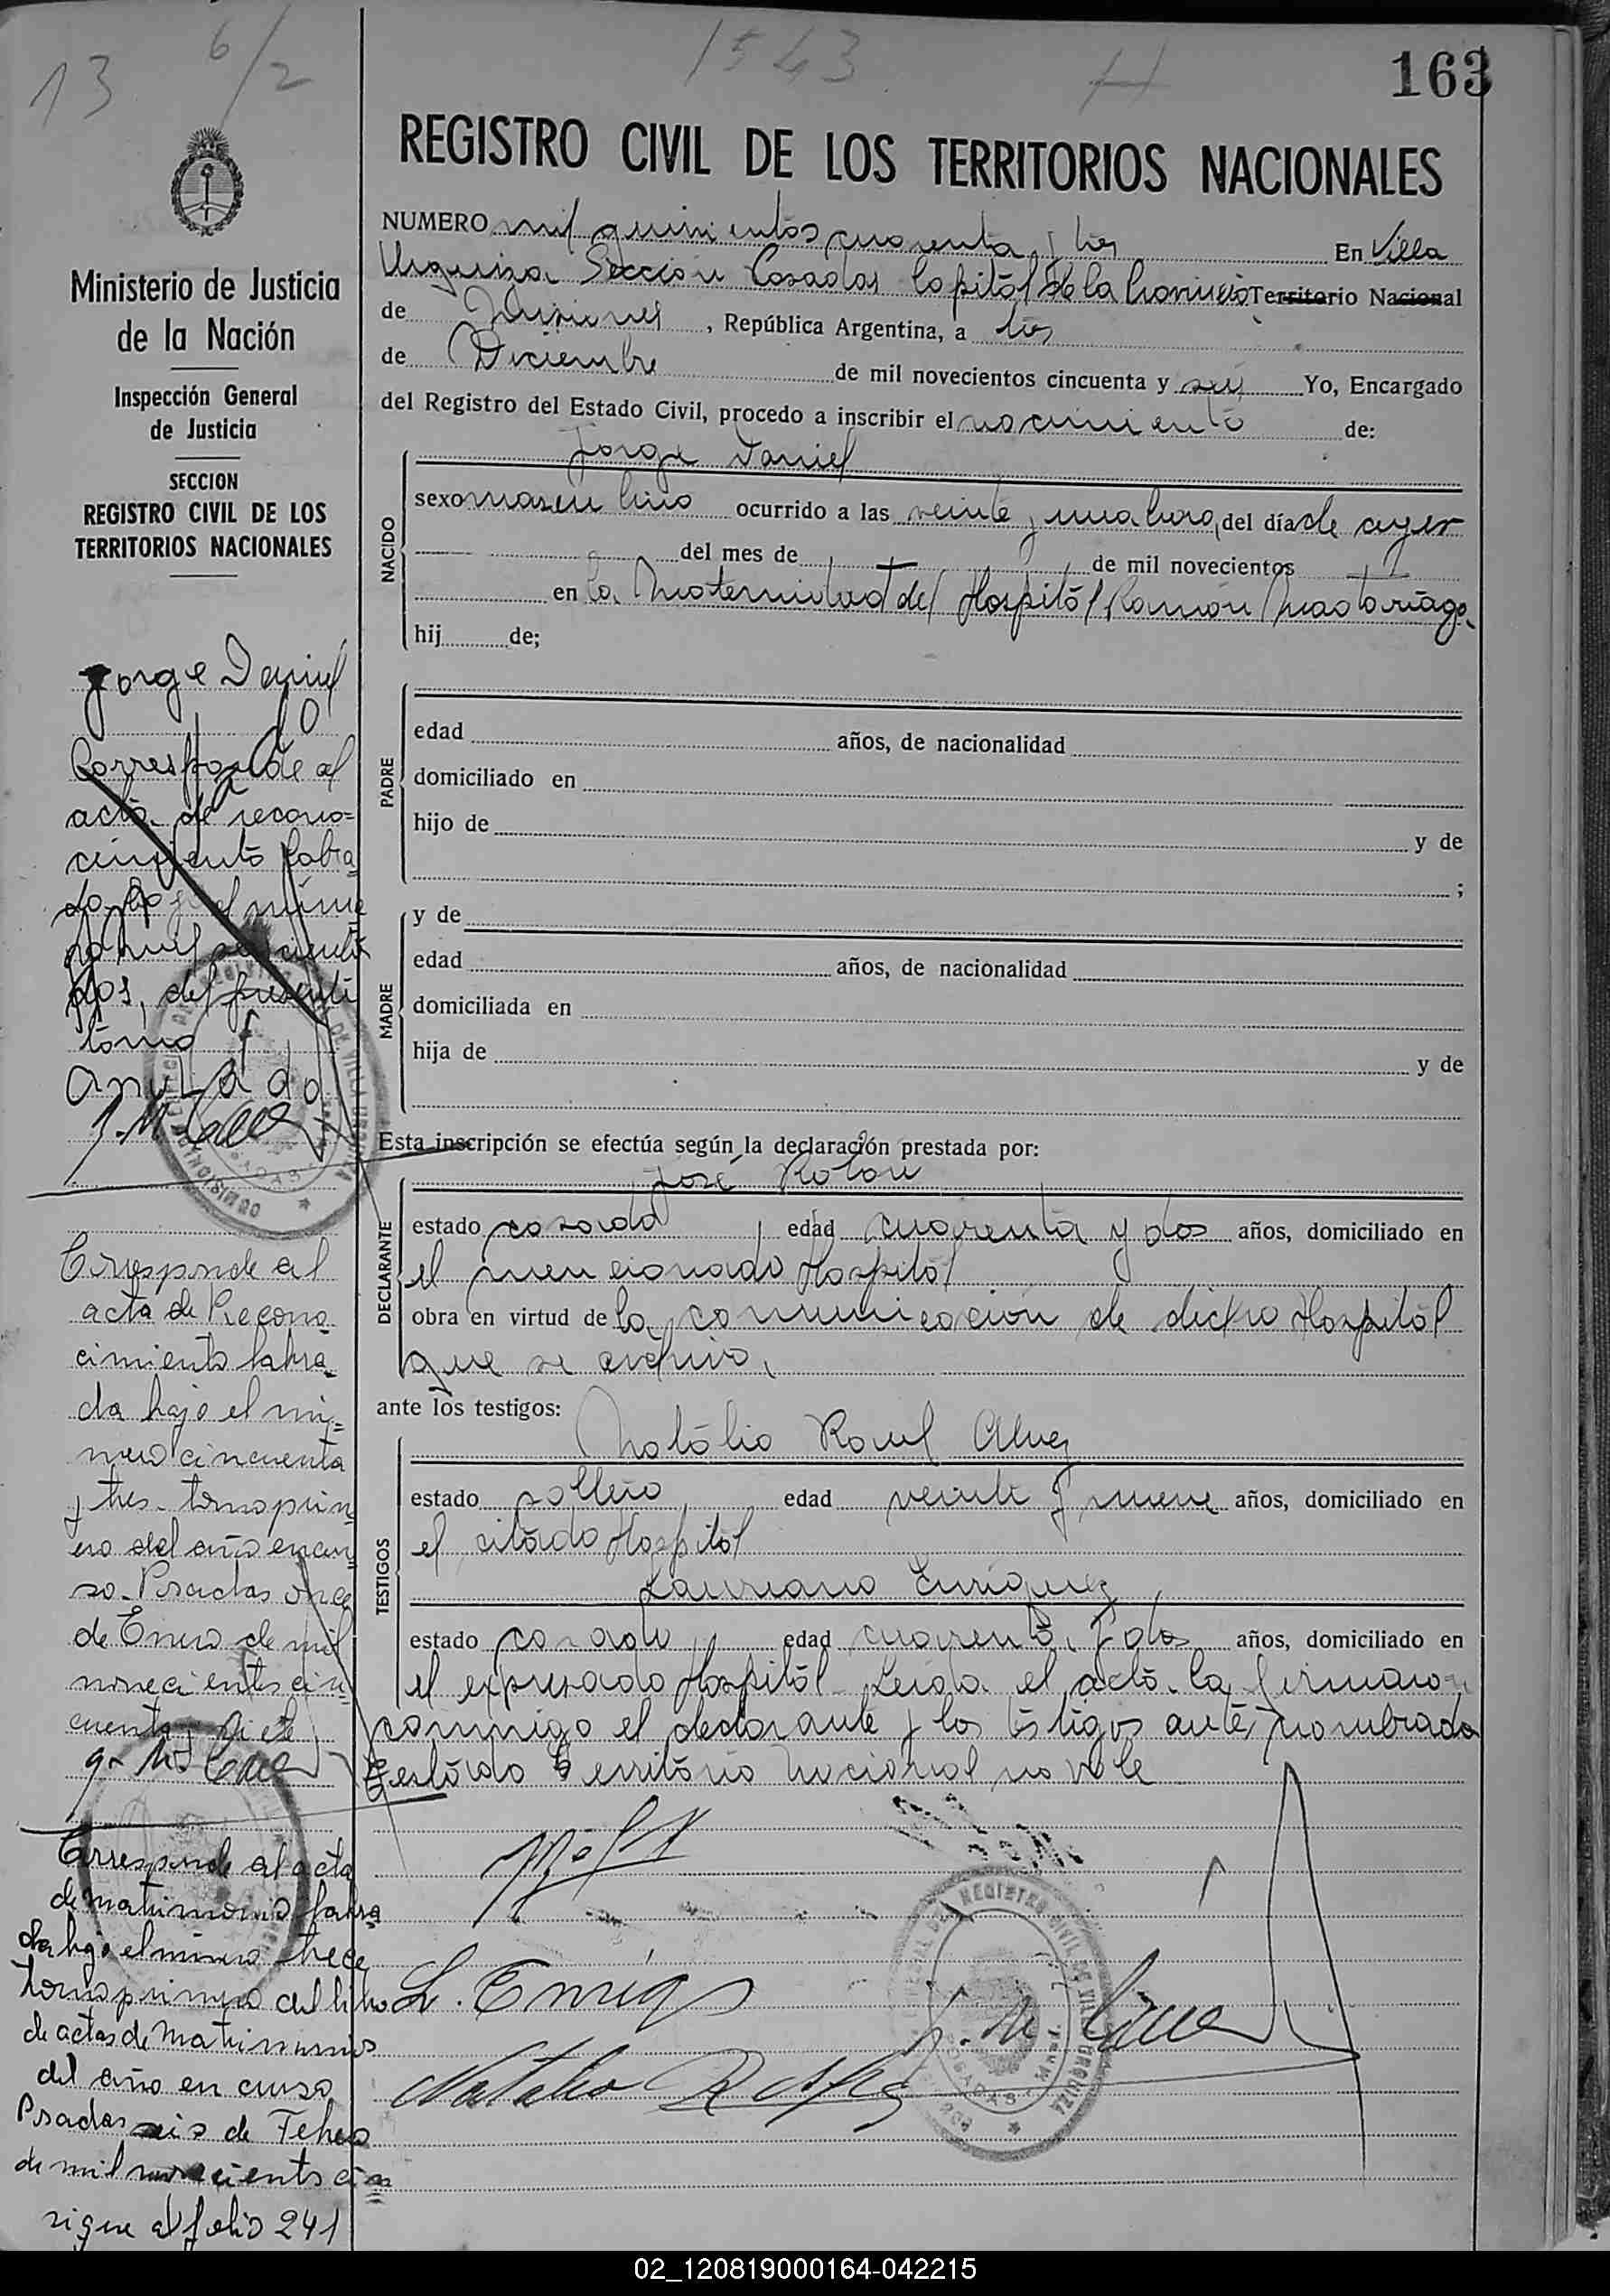 13 6/2
1543
163
Ministerio de Justicia
de la Nación
Inspección General
de Justicia
SECCION
REGISTRO CIVIL DE LOS
TERRITORIOS NACIONALES
Jorge Daniel
Corresponde al
acta de recono=
cimiento labra
do bajo el núme
ro mil seiscientos
dos, del presente
tomo
Anulado
J. M.
Corresponde al
acta de Recono_
cimiento labra_
da bajo el nú=
mero cincuenta
y tres - tomo prim
ero del año en cur
so - Posadas once
de Enero de mil
novecientos cin
cuenta y siete
Corresponde al acta
de matrimonio labra
da bajo el número trece
tomo primero del libro
de actas de Matrimonios
del año en curso
Posadas seis de Febrero
de mil novecientos cin
sigue al folio 241
REGISTRO CIVIL DE LOS TERRITORIOS NACIONALES
NUMERO mil quinientos cuarenta y tres En Villa
Urquiza Sección Posadas Capital de la Provincia Territorio Nacional
de Misiones, República Argentina, a tres
de Diciembre de mil novecientos cincuenta y seis Yo, Encargado
del Registro del Estado Civil, procedo a inscribir el nacimiento de:
Jorge Daniel
NACIDO
sexo masculino ocurrido a las veinte y una hora, del día de ayer
del mes de de mil novecientos
en la Maternidad del Hospital Ramón Madariaga.
hij de;
PADRE
edad años, de nacionalidad
domiciliado en
hijo de y de
;
MADRE
y de
edad años, de nacionalidad
domiciliada en
hija de y de
Esta inscripción se efectúa según la declaración prestada por:
José Rolon
DECLARANTE
estado casado, edad cuarenta y dos años, domiciliado en
el mencionado Hospital
obra en virtud de la comunicación de dicho Hospital
que se archiva,
ante los testigos:
TESTIGOS
Natalio Raul Alvez
estado soltero, edad veinte y nueve años, domiciliado en
el citado Hospital
Laureano Enriquez,
estado casado, edad cuarenta y dos años, domiciliado en
el expresado Hospital - Leida el acta la firmaron
conmigo el declarante y los testigos ante nombrados
Testado Territorio Nacional no vale
L. Enriq
Natalio R Alvez
02_120819000164-042215